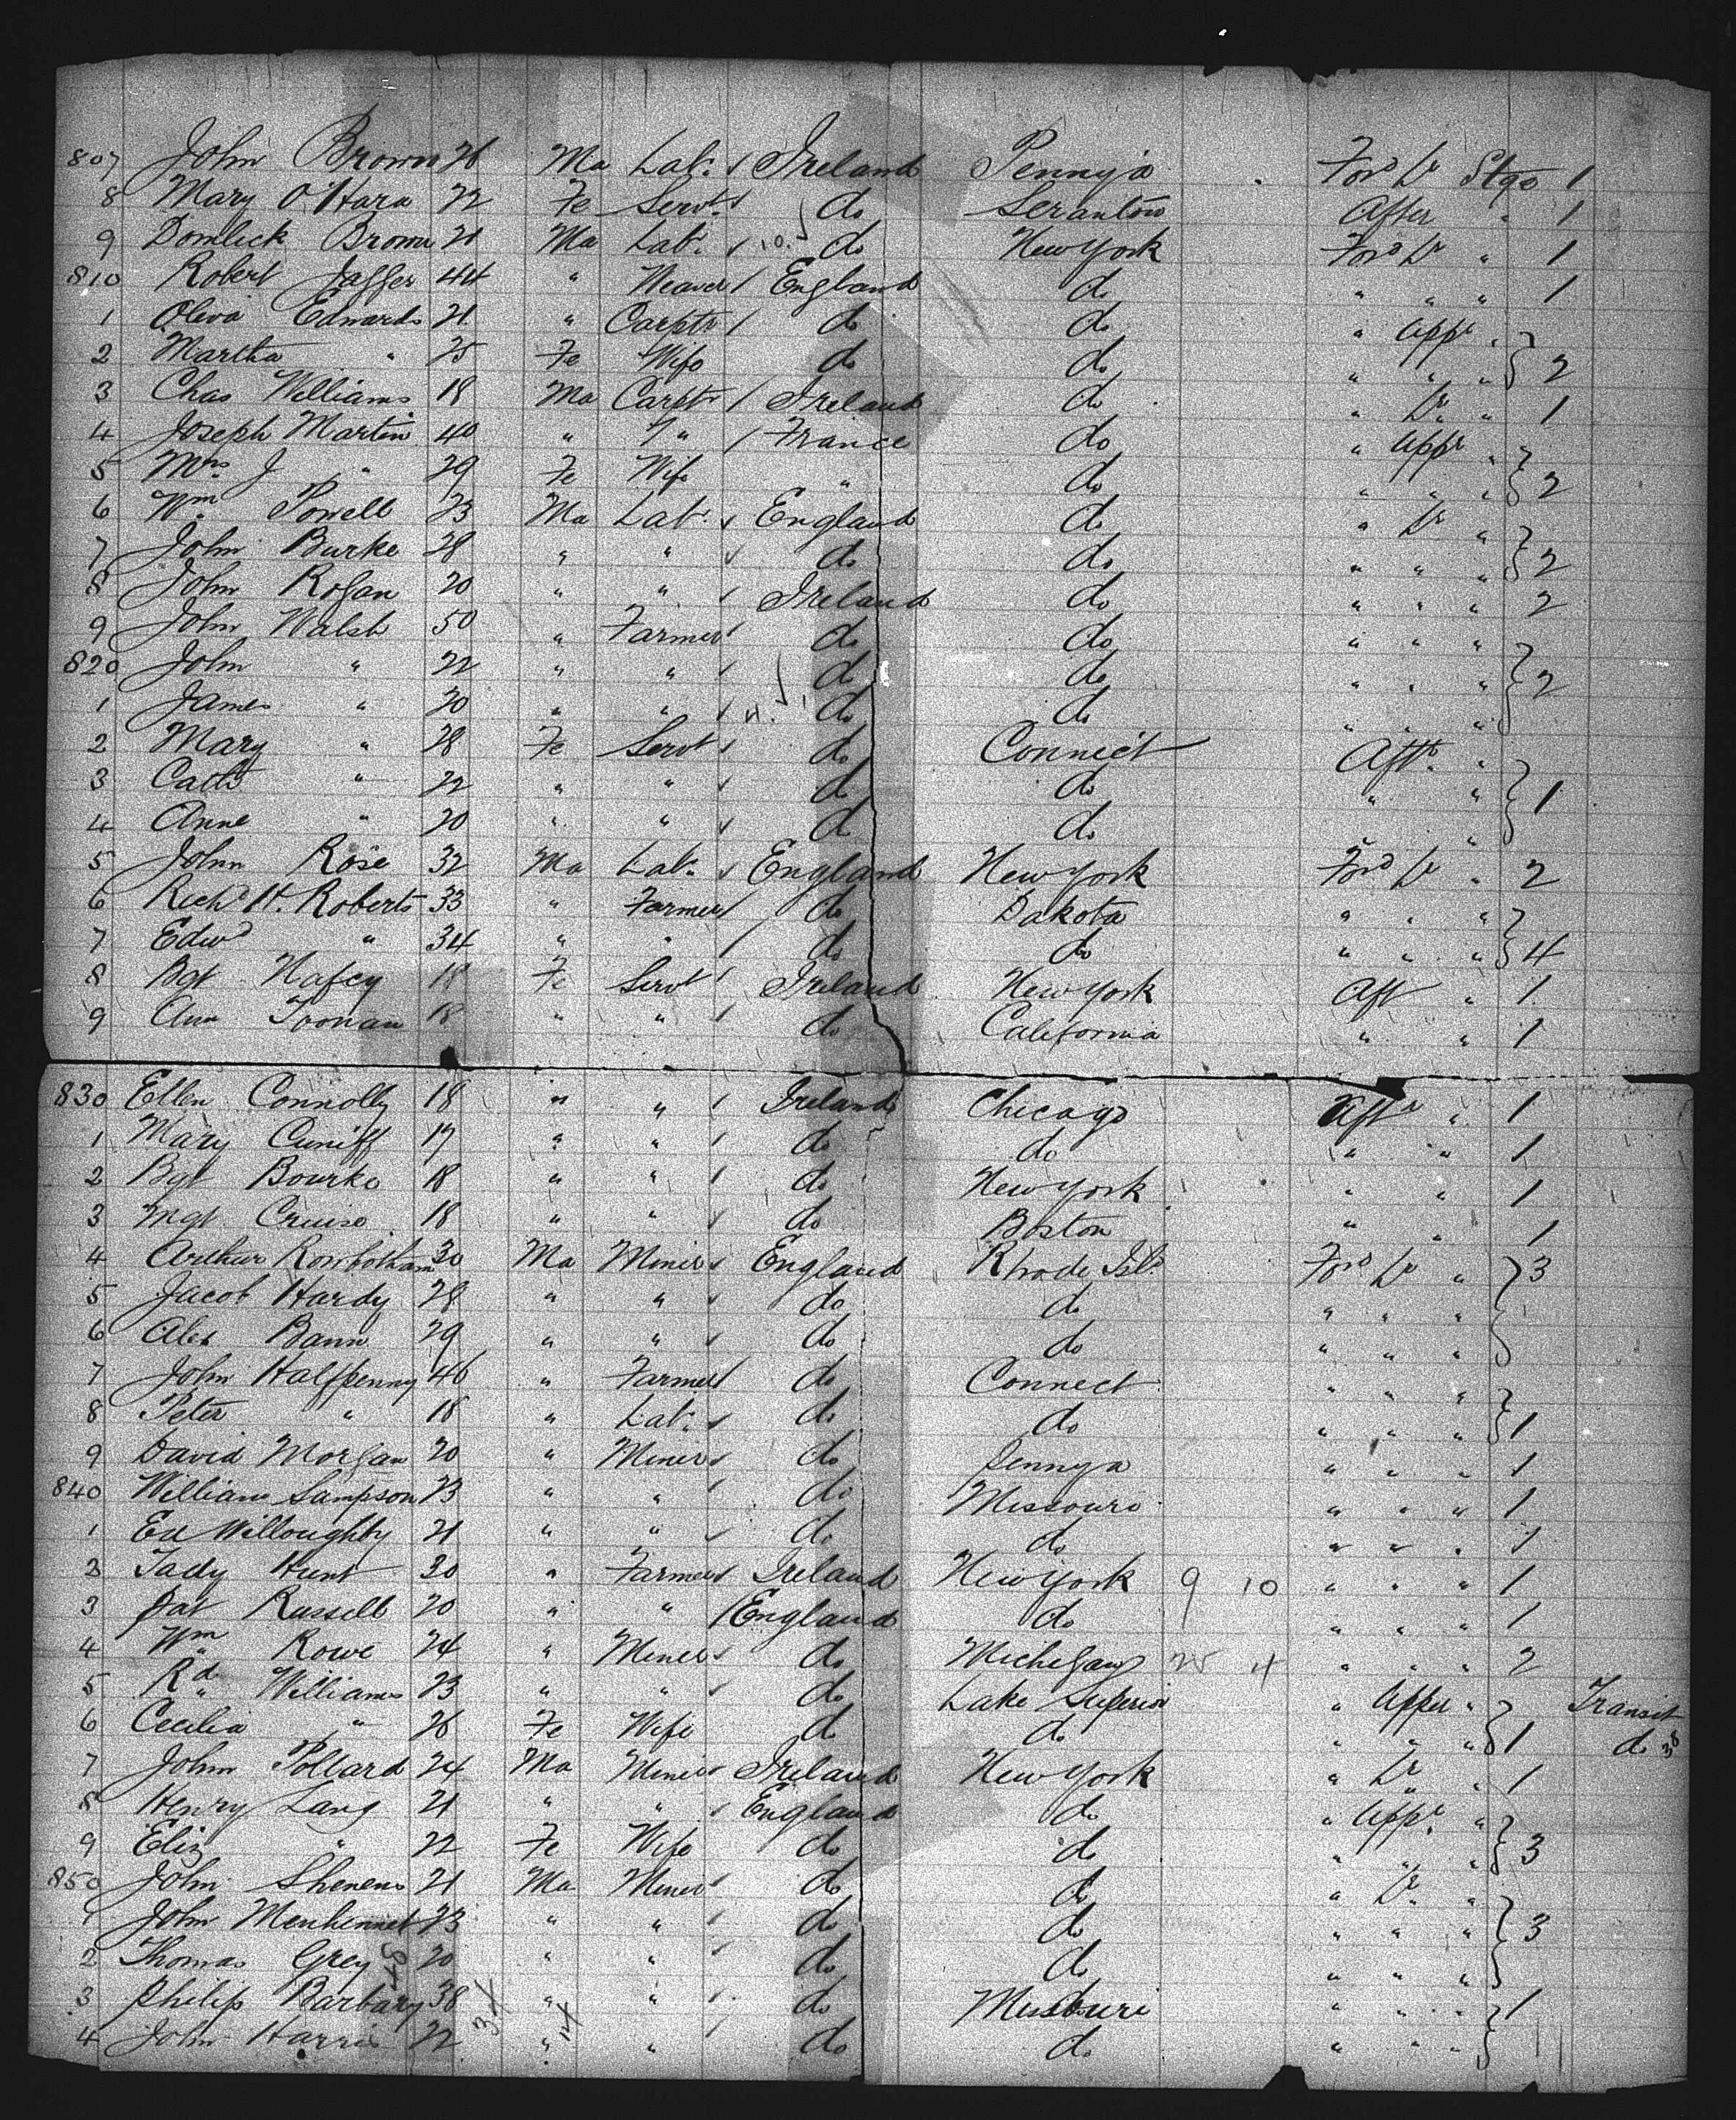 807 John Brown 26 Ma Labr Ireland Pennya Ford Lr Stge 1
8 Mary O'Hara 22 Fe Servt do Scranton After " 1
9 Domlick Brown 21 Ma Labr 10. do New York Ford Lr " 1
810 Robert Jaffer 44 " Weaver England do " " " 1
1 Oliva Edwards 21 " Carptr do do " Uppr "
2 Martha " 25 Fe Wife do do " " " 2
3 Chas Williams 18 Ma Carptr Ireland do " Lr " 1
4 Joseph Martin 40 " " France do " Uppr "
5 Mrs J " 29 Fe Wife " do " " " 2
6 Wm Powell 23 Ma Labr England do " Lr "
7 John Burke 28 " " do do " " " 2
8 John Rogan 20 " " Ireland do " " " 2
9 John Walsh 50 " Farmer do do " " "
820 John " 22 " " do do " " " 2
1 James " 20 " " do do " " "
2 Mary " 28 Fe Servt do Connect Aftr "
3 Cath " 22 " " do do " " 1
4 Anne " 20 " " do do "
5 John Rose 32 Ma Labr England New York Ford Lr " 2
6 Richd H. Roberts 33 " Farmer do Dakota " " "
7 Edwd " 34 " " do do " " " 4
8 Bgt Hafey 18 Fe Servt Ireland New York Aft " 1
9 Ann Toonan 18 " " do California " " 1
830 Ellen Connolly 18 " " Ireland Chicago Aftr " 1
1 Mary Cuniff 17 " " do do " " 1
2 Bgt Bourke 18 " " do New York " " 1
3 Mgt Cruise 18 " " do Boston " " 1
4 Arthur Rowbotham 30 Ma Miner England Rhode Isld Ford Lr " 3
5 Jacob Hardy 28 " " do do " " "
6 Alex Bann 29 " " do do " " "
7 John Halfpenny 46 " Farmer do Connect " " "
8 Peter " 18 " Labr do do " " " 1
9 David Morgan 20 " Miner do Pennya " " " 1
840 William Sampson 23 " " do Missouri " " " 1
1 Ed Willoughby 21 " " do do " " " 1
2 Tady Hunt 30 " Farmer Ireland New York 9 10 " " " 1
3 Pat Russell 20 " " England do " " " 1
4 Wm Rowe 24 " Miner do Michigan 25 4 " " " 2
5 Rd Williams 23 " " do Lake Superior " Upper " Transit
6 Cecilia " 26 Fe Wife do do " " " 1 do
7 John Pollard 24 Ma Miner Ireland New York " Lr " 1
8 Henry Lang 21 " " England do " Uppr "
9 Eliz " 22 Fe Wife do do " " " 3
850 John Shenens 21 Ma Miner do do " Lr "
1 John Menhennet 23 " " do do " " " 3
2 Thomas Grey 20 " " do do " " "
3 Philip Barbary 38 " " do Missouri " " " 1
4 John Harris 22 " " do do " " "